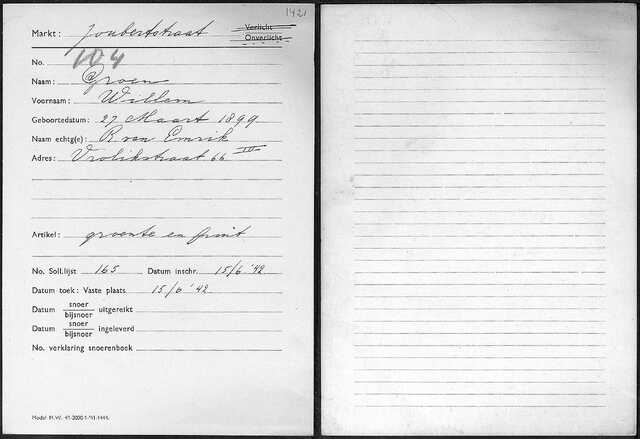 1421
Markt: Joubertstraat
Verlicht
Onverlicht
No. 104
Naam: Groen
Voornaam: Willem
Geboortedatum: 27 Maart 1899
Naam echtg(e): R van Emrik
Adres: Vrolikstraat 66 III
Artikel: groente en fruit
No. Soll.lijst 165 Datum inschr. 15/6 '42
Datum toek: Vaste plaats 15/6 '42
Datum snoer/bijsnoer uitgereikt
Datum snoer/bijsnoer ingeleverd
No. verklaring snoerenboek
Model M.W.